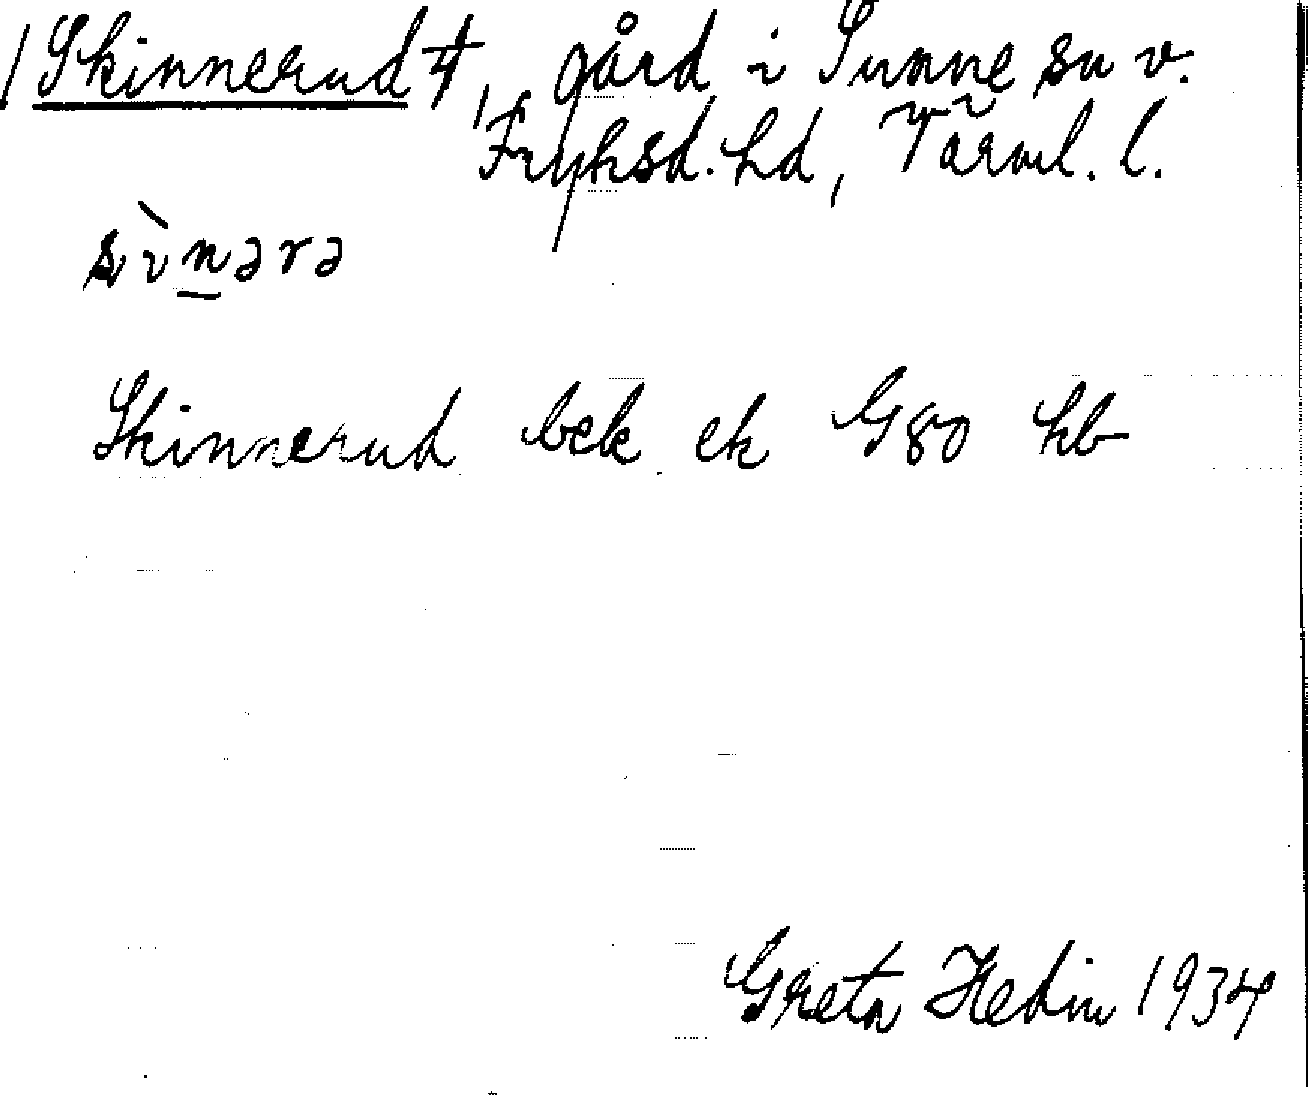 Skinnerud 4, gård i Sunne sn v.
Fryksd. hd, Värml. l.
sìnərə
Skinnerud bek ek G80 hb
Greta Hedin 1934